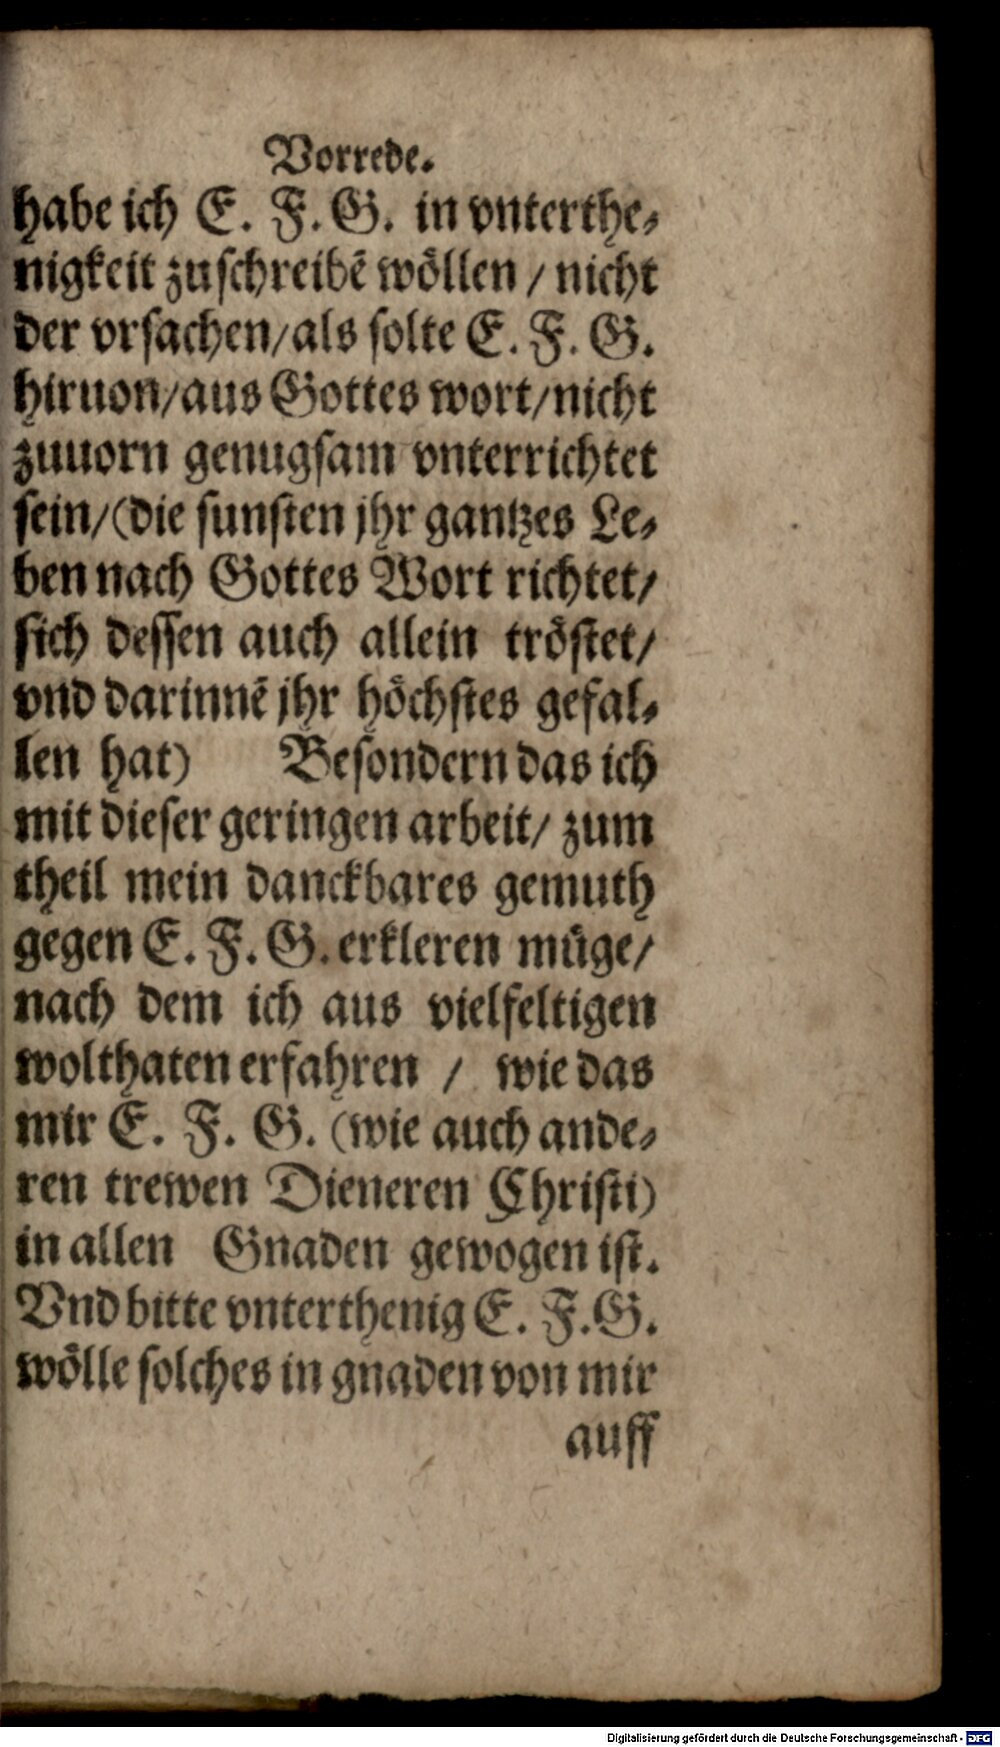 Vorrede.
habe ich E. F. G. in vnterthe-
nigkeit zuschreibē wöllen / nicht
der vrsachen/als solte E. F. G.
hiruon/aus Gottes wort/nicht
zuuorn genugsam vnterrichtet
sein/(die sunsten jhr gantzes Le-
ben nach Gottes Wort richtet/
sich dessen auch allein tröstet/
vnd darinnē jhr höchstes gefal-
len hat) Besondern das ich
mit dieser geringen arbeit/ zum
theil mein danckbares gemuth
gegen E. F. G. erkleren müge/
nach dem ich aus vielfeltigen
wolthaten erfahren / wie das
mir E. F. G. (wie auch ande-
ren trewen Dieneren Christi)
in allen Gnaden gewogen ist.
Vnd bitte vnterthenig E. F. G.
wölle solches in gnaden von mir
auff
Digitalisierung gefördert durch die Deutsche Forschungsgemeinschaft - DFG